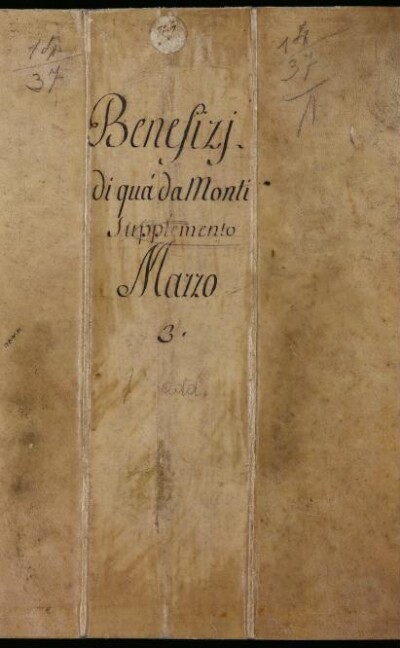 37
37
Benefizj.
di quá da Monti
Supplemento
Marzo
3.